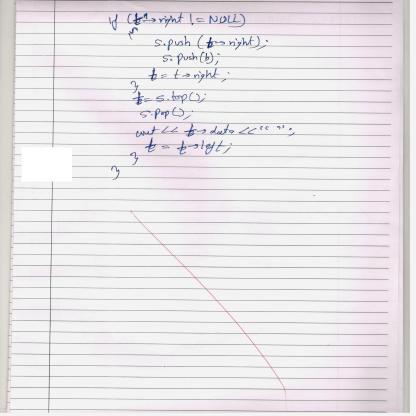 if (t→right != NULL)
{
s.push (t→right);
s.push(t);
t = t→right;
}
t = s.top();
s.pop();
cout << t→data << " ";
t = t→left;
}
}